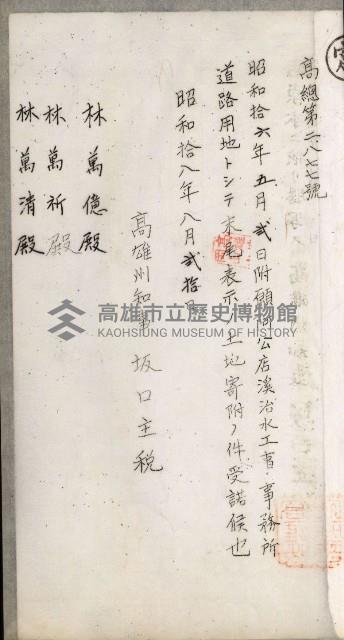 高總第二八七七號
昭和拾六年五月貳日附願阿公店溪治水工事事務所
道路用地トシテ末尾表示ノ土地寄附ノ件受諾候也
昭和拾八年八月貳拾日
高雄州知事 坂口主税
林萬億殿
林萬祈殿
林萬清殿
高雄市立歷史博物館
KAOHSIUNG MUSEUM OF HISTORY